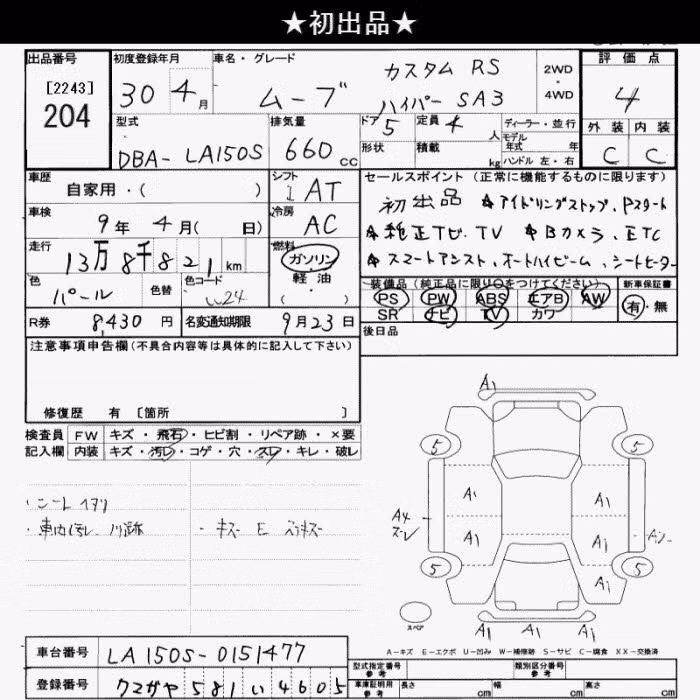 ★初出品★
出品番号
[2243]
204
初度登録年月
30年 4月
車名・グレード
ムーブ
カスタム RS
ハイパー SA3
2WD
・
4WD
評価点
4
外装 内装
C C
型式
DBA- LA150S
排気量
660cc
ドア 5
定員 4人
ディーラー・並行
モデル年式 年
形状
積載 kg
ハンドル 左・右
車歴
自家用・( )
シフト
AT
車検
9年 4月( 日)
冷房
AC
走行
13万8千821km
燃料
ガソリン・軽油・( )
色
パール
色替
色コード
W24
R券 8,430円
名変通知期限 9月23日
セールスポイント(正常に機能するものに限ります)
初出品 ☆アイドリングストップ、Pスタート
☆純正ナビ、TV ☆Bカメラ、ETC
☆スマートアシスト、オートハイビーム、シートヒーター
装備品(純正品に限り○をつけてください)
新車保証書
PS PW ABS エアB AW
有・無
SR ナビ TV カワ
後日品
注意事項申告欄(不具合内容等は具体的に記入して下さい)
修復歴 有 〔箇所 〕
検査員記入欄
FW キズ・飛石・ヒビ割・リペア跡・×要
内装 キズ・汚レ・コゲ・穴・スレ・キレ・破レ
・シートスリ
・車内汚レ、ノリ跡
・キズ E スリキズ
A1
5 5
A1 A1
A4
スレ
A1 A1
5 5
A1
A1 A1 A1
スペア
A-キズ E-エクボ U-凹み W-補修跡 S-サビ C-腐食 XX-交換済
車台番号 LA150S-0151477
登録番号 クマガヤ 581 い 4605
型式指定番号 参考
類別区分番号 参考
車庫証明用 参考
長さ cm
幅 cm
高さ cm